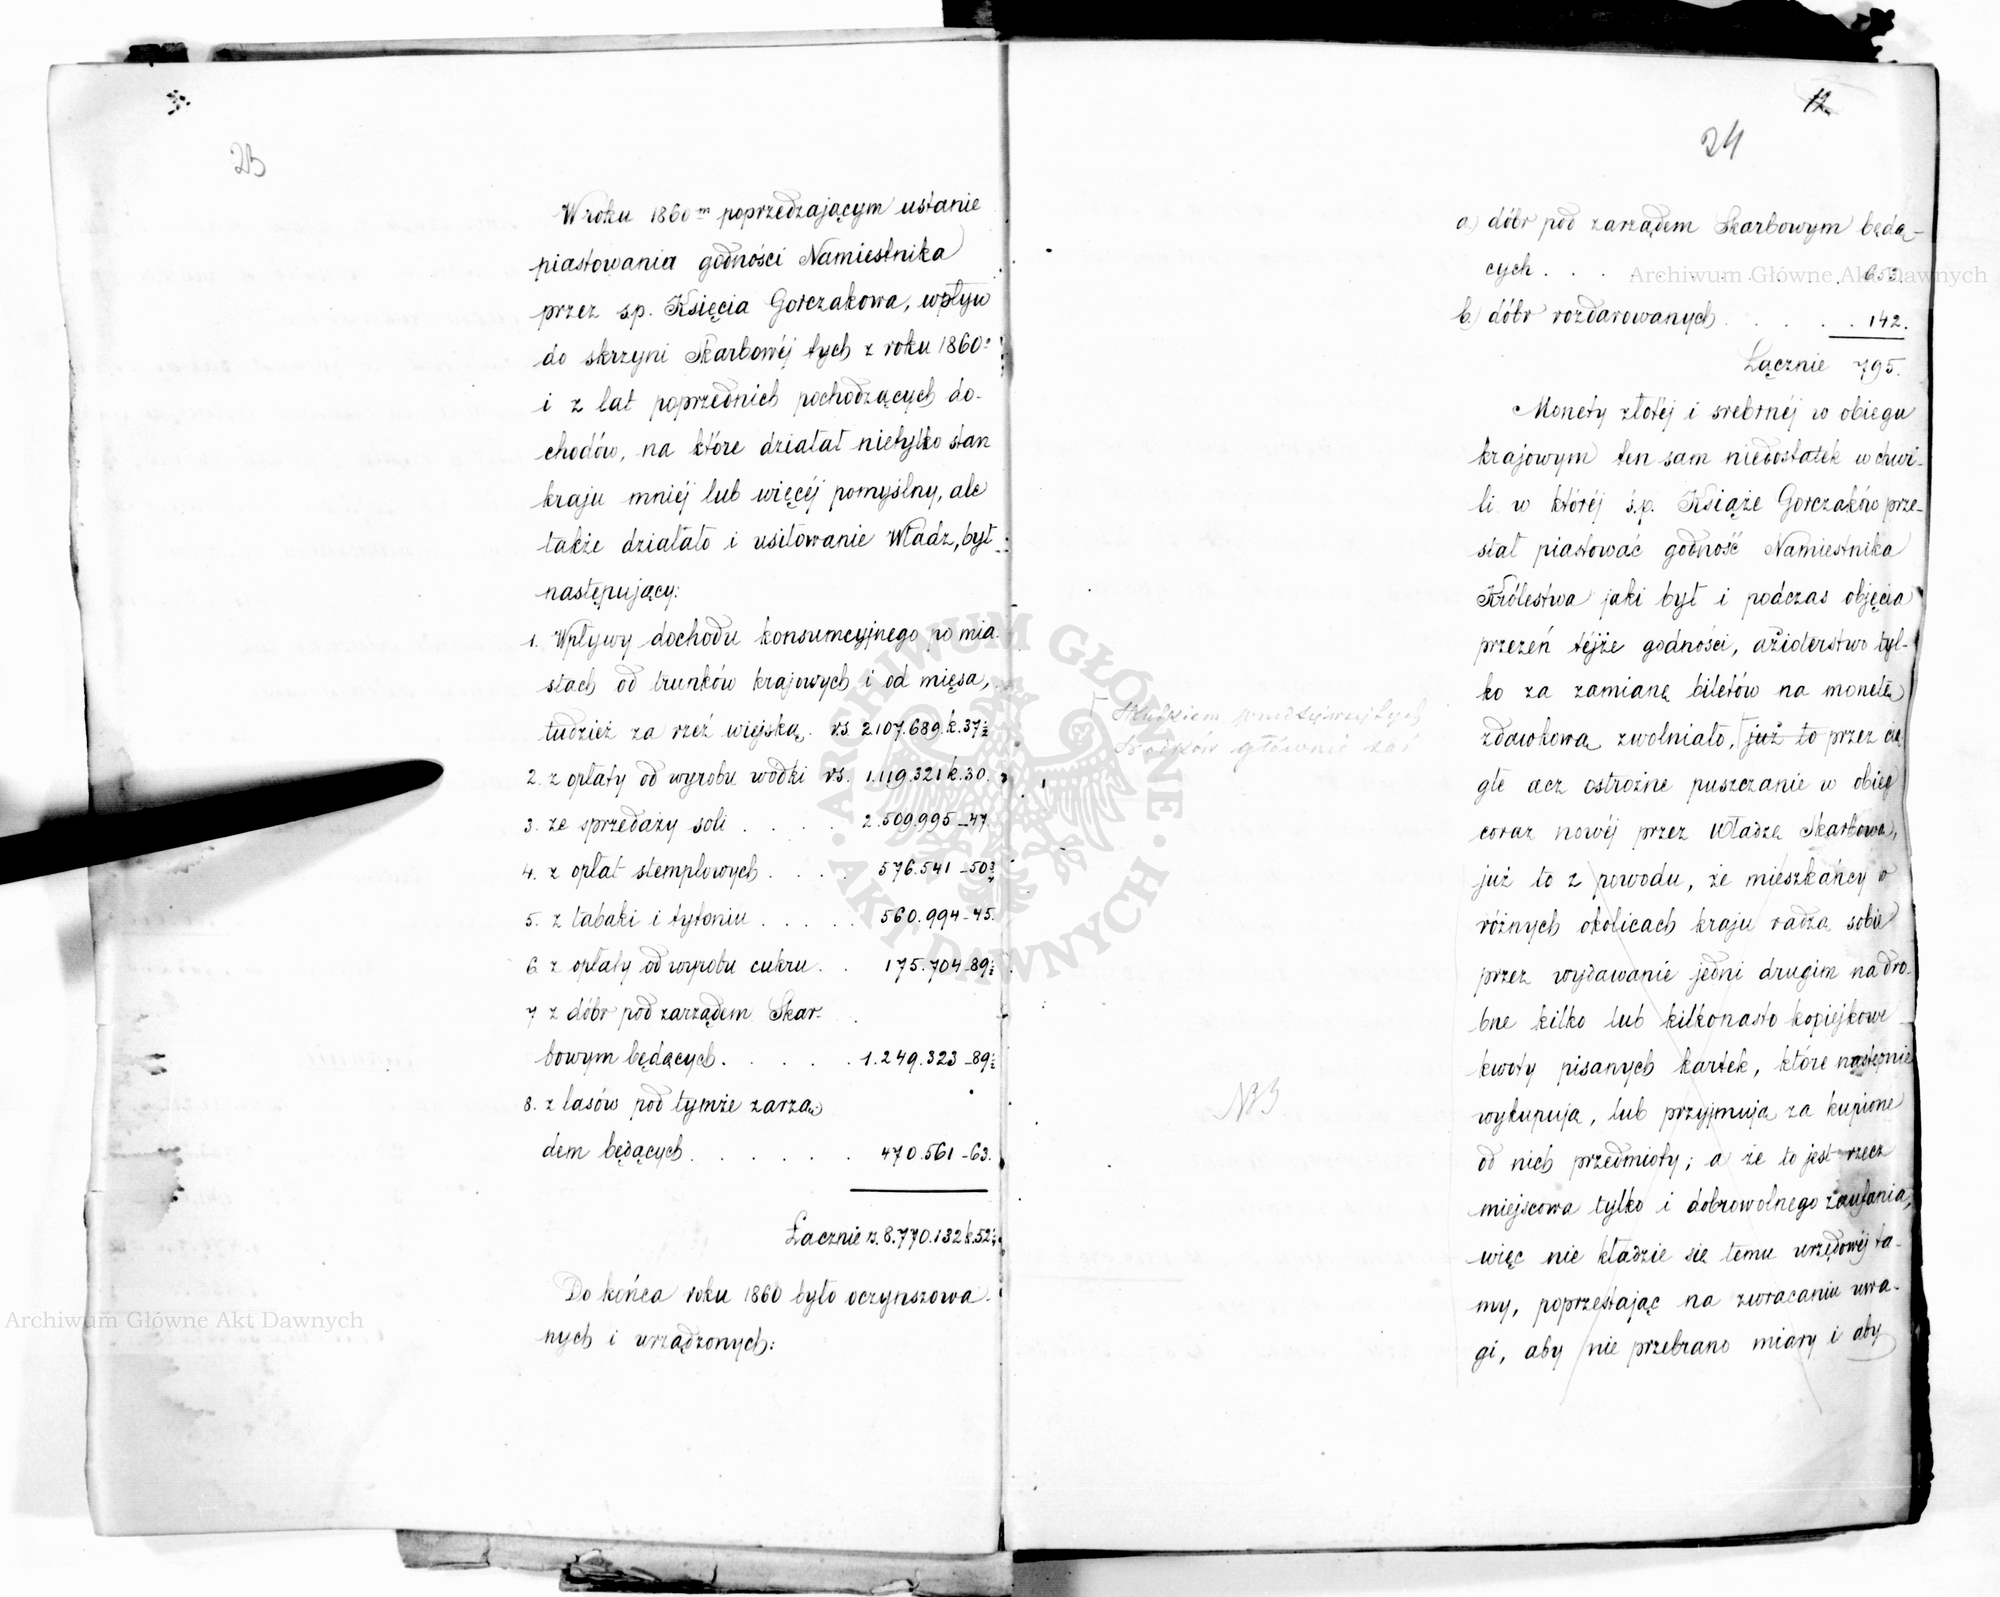 23
W roku 1860m poprzedzającym ustanie
piastowania godności Namiestnika
przez sp. Księcia Gorczakowa, wpływ
do skrzyni Skarbowéj tych z roku 1860o
i z lat poprzednich pochodzących do-
chodów, na które działał nietylko stan
kraju mniéj lub więcéj pomyślny, ale
także działało i usiłowanie Władz, był
następujący:
1. Wpływy dochodu konsumcyjnego po mia-
stach od trunków krajowych i od mięsa,
tudzież za rzeź wiejską. rs. 2.107.689.k.37½
2. z opłaty od wyrobu wódki rs. 1.119.321 k.30.
3. ze sprzedaży soli . . . . 2.509.995 - 47.
4. z opłat stemplowych . . . . 576.541 - 50¾
5. z tabaki i tytoniu . . . . . 560.994 - 45.
6. z opłaty od wyrobu cukru . . 175.704 - 89½
7 z dóbr pod zarządem Skar-
bowym będących . . . . . 1.249.323 - 89½
8. z lasów pod tymże zarzą-
dem będących . . . . . . 470.561 - 63.
Łącznie rs. 8.770.132 k. 52¼
Do końca roku 1860 było oczynszowa-
nych i urządzonych:
12
24
a.) dóbr pod zarządem Skarbowym będą-
cych . . . . . . . . 653.
b.) dóbr rozdarowanych . . . . . 142.
Łącznie 795.
Monety złotéj i srebrnéj w obiegu
krajowym ten sam niedostatek w chwi-
li w któréj ś.p. Książe Gorczaków prze-
stał piastować godność Namiestnika
Królestwa jaki był i podczas objęcia
przezeń téjże godności, ażioterstwo tyl-
ko za zamianę biletów na monetę
zdawkową zwolniało, już to przez cią
głe acz ostrożne puszczanie w obieg
coraz nowéj przez Władzę Skarbową,
już to z powodu, że mieszkańcy w
różnych okolicach kraju radzą sobie
przez wydawanie jedni drugim na dro-
bne kilko lub kilkonasto kopiejkowe
kwoty pisanych kartek, które następnie
wykupują, lub przyjmują za kupione
od nich przedmioty; a że to jest rzecz
miejscowa tylko i dobrowolnego zaufania,
więc nie kładzie się temu urzędowéj ta-
my, poprzestając na zwracaniu uwa-
gi, aby nie przebrano miary i aby
Skutkiem
głównie zaś
Archiwum Główne Akt Dawnych
Archiwum Główne Akt Dawnych
ARCHIWUM GŁÓWNE
AKT DAWNYCH